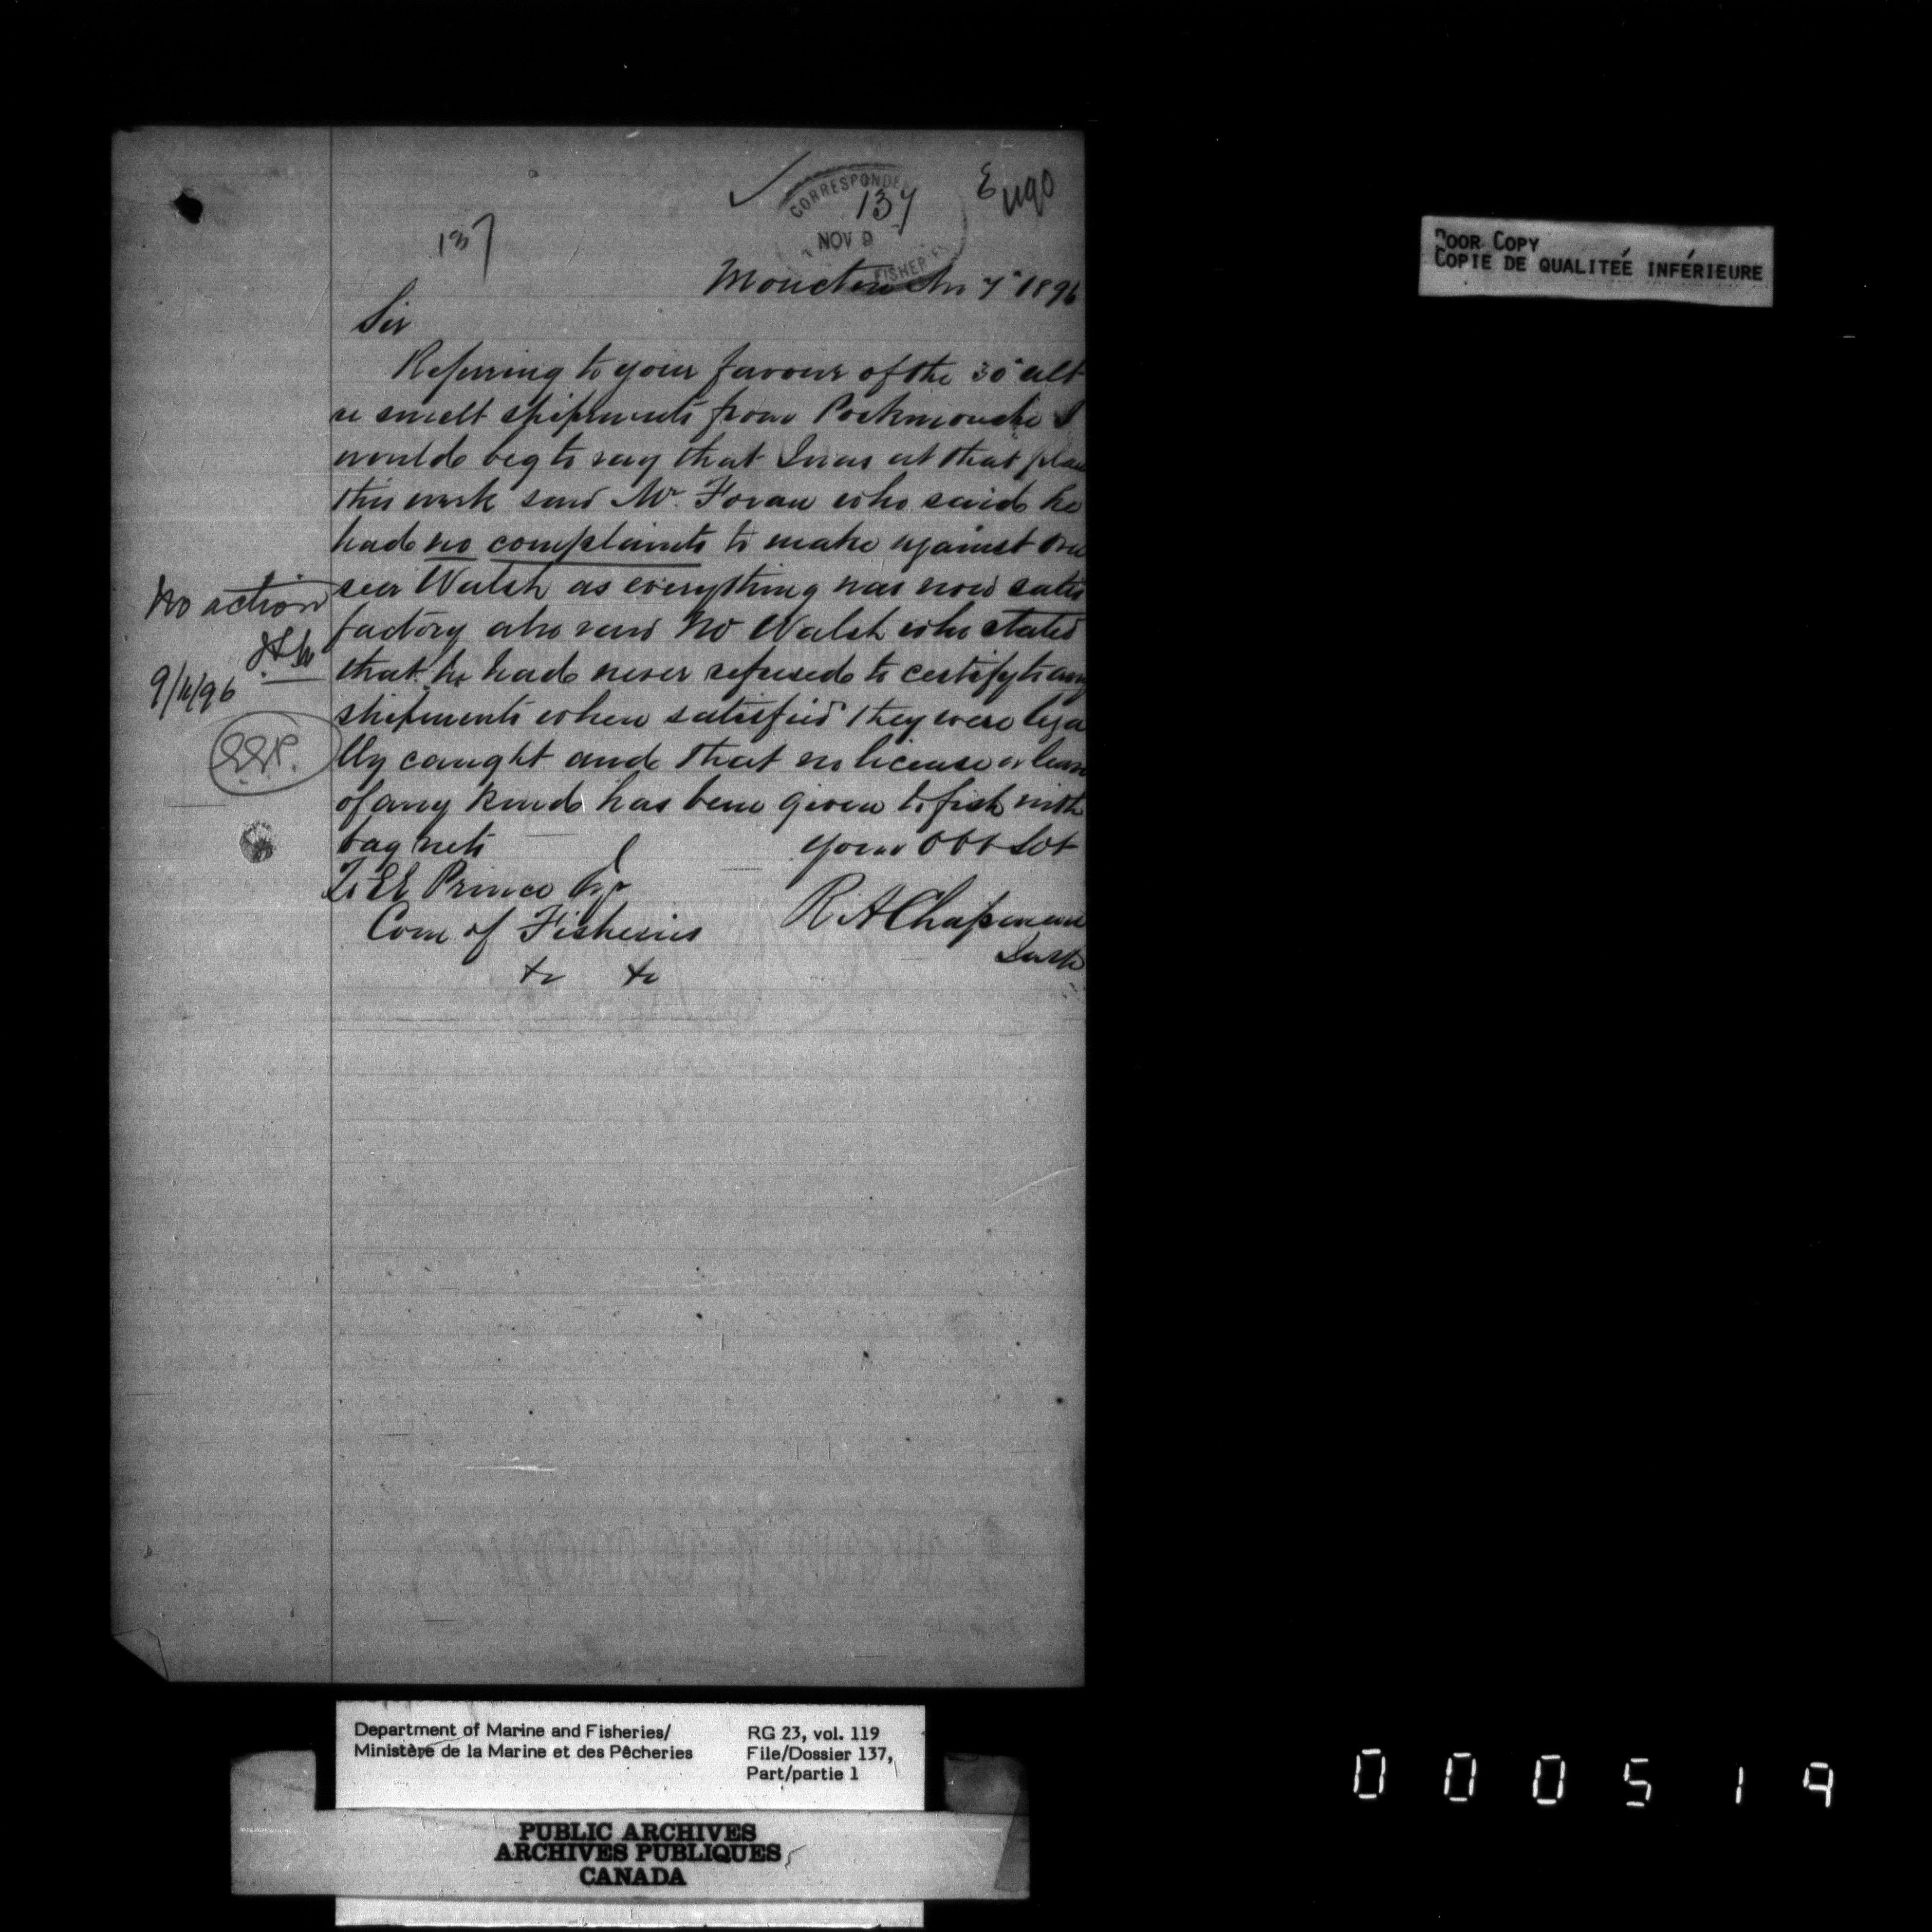 CORRESPONDE
137
NOV 9
FISHERIE
E 1190
137
Moncton Nov 7" 1896
Sir
Referring to your favour of the 30" ult
re smelt shipments from Pockmouche I
would beg to say that I was at that place
this week saw Mr. Foran who said he
had no complaints to make against Over
seer Walsh as everything was now satis
factory also saw Mr Walsh who stated
that he had never refused to certify to any
shipments when satisfied they were lega
lly caught and that no license or lease
of any kind has been given to fish with
bag nets
your Obt Svt
To EE Prince Esqr
R A Chapman
Com of Fisheries
Insp
&c &c
No action
9/11/96
EEP.
POOR COPY
COPIE DE QUALITEÉ INFÉRIEURE
Department of Marine and Fisheries/
Ministère de la Marine et des Pêcheries
RG 23, vol. 119
File/Dossier 137,
Part/partie 1
PUBLIC ARCHIVES
ARCHIVES PUBLIQUES
CANADA
000519